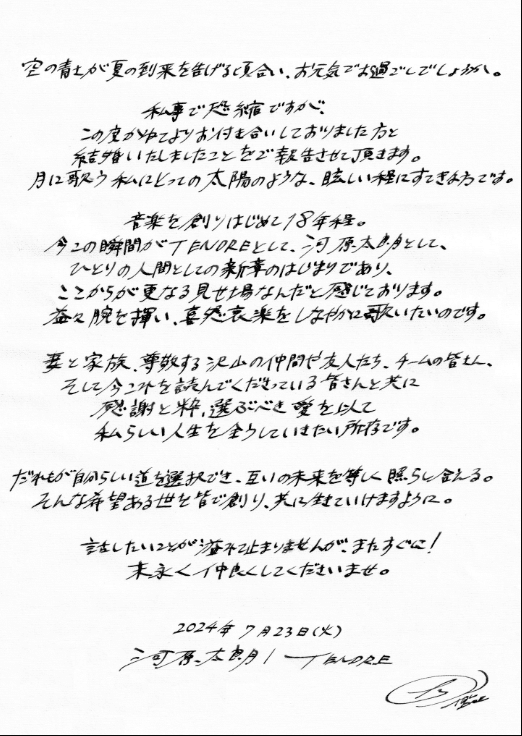 空の青さが夏の到来を告げる頃合い、お元気でお過ごしでしょうか。
私事で恐縮ですが、
この度かねてよりお付き合いしておりました方と
結婚いたしましたことをご報告させて頂きます。
月に歌う私にとっての太陽のような、眩しい程にすてきな方です。
音楽を創りはじめて18年程。
今この瞬間がTENDREとして、河原太朗として、
ひとりの人間としての新章のはじまりであり、
ここからが更なる見せ場なんだと感じております。
益々腕を揮い、喜怒哀楽をしなやかに歌いたいのです。
妻と家族、尊敬する沢山の仲間や友人たち、チームの皆さん、
そして今これを読んでくださっている皆さんと共に
感謝と粋、選ぶべき愛を以て
私らしい人生を全うしていきたい所存です。
だれもが自分らしい道を選択でき、互いの未来を等しく照らし合える。
そんな希望ある世を皆で創り、共に生きていけますように。
話したいことが溢れて止まりませんが、またすぐに!
末永く仲良くしてくださいませ。
2024年7月23日(火)
河原太朗 / TENDRE